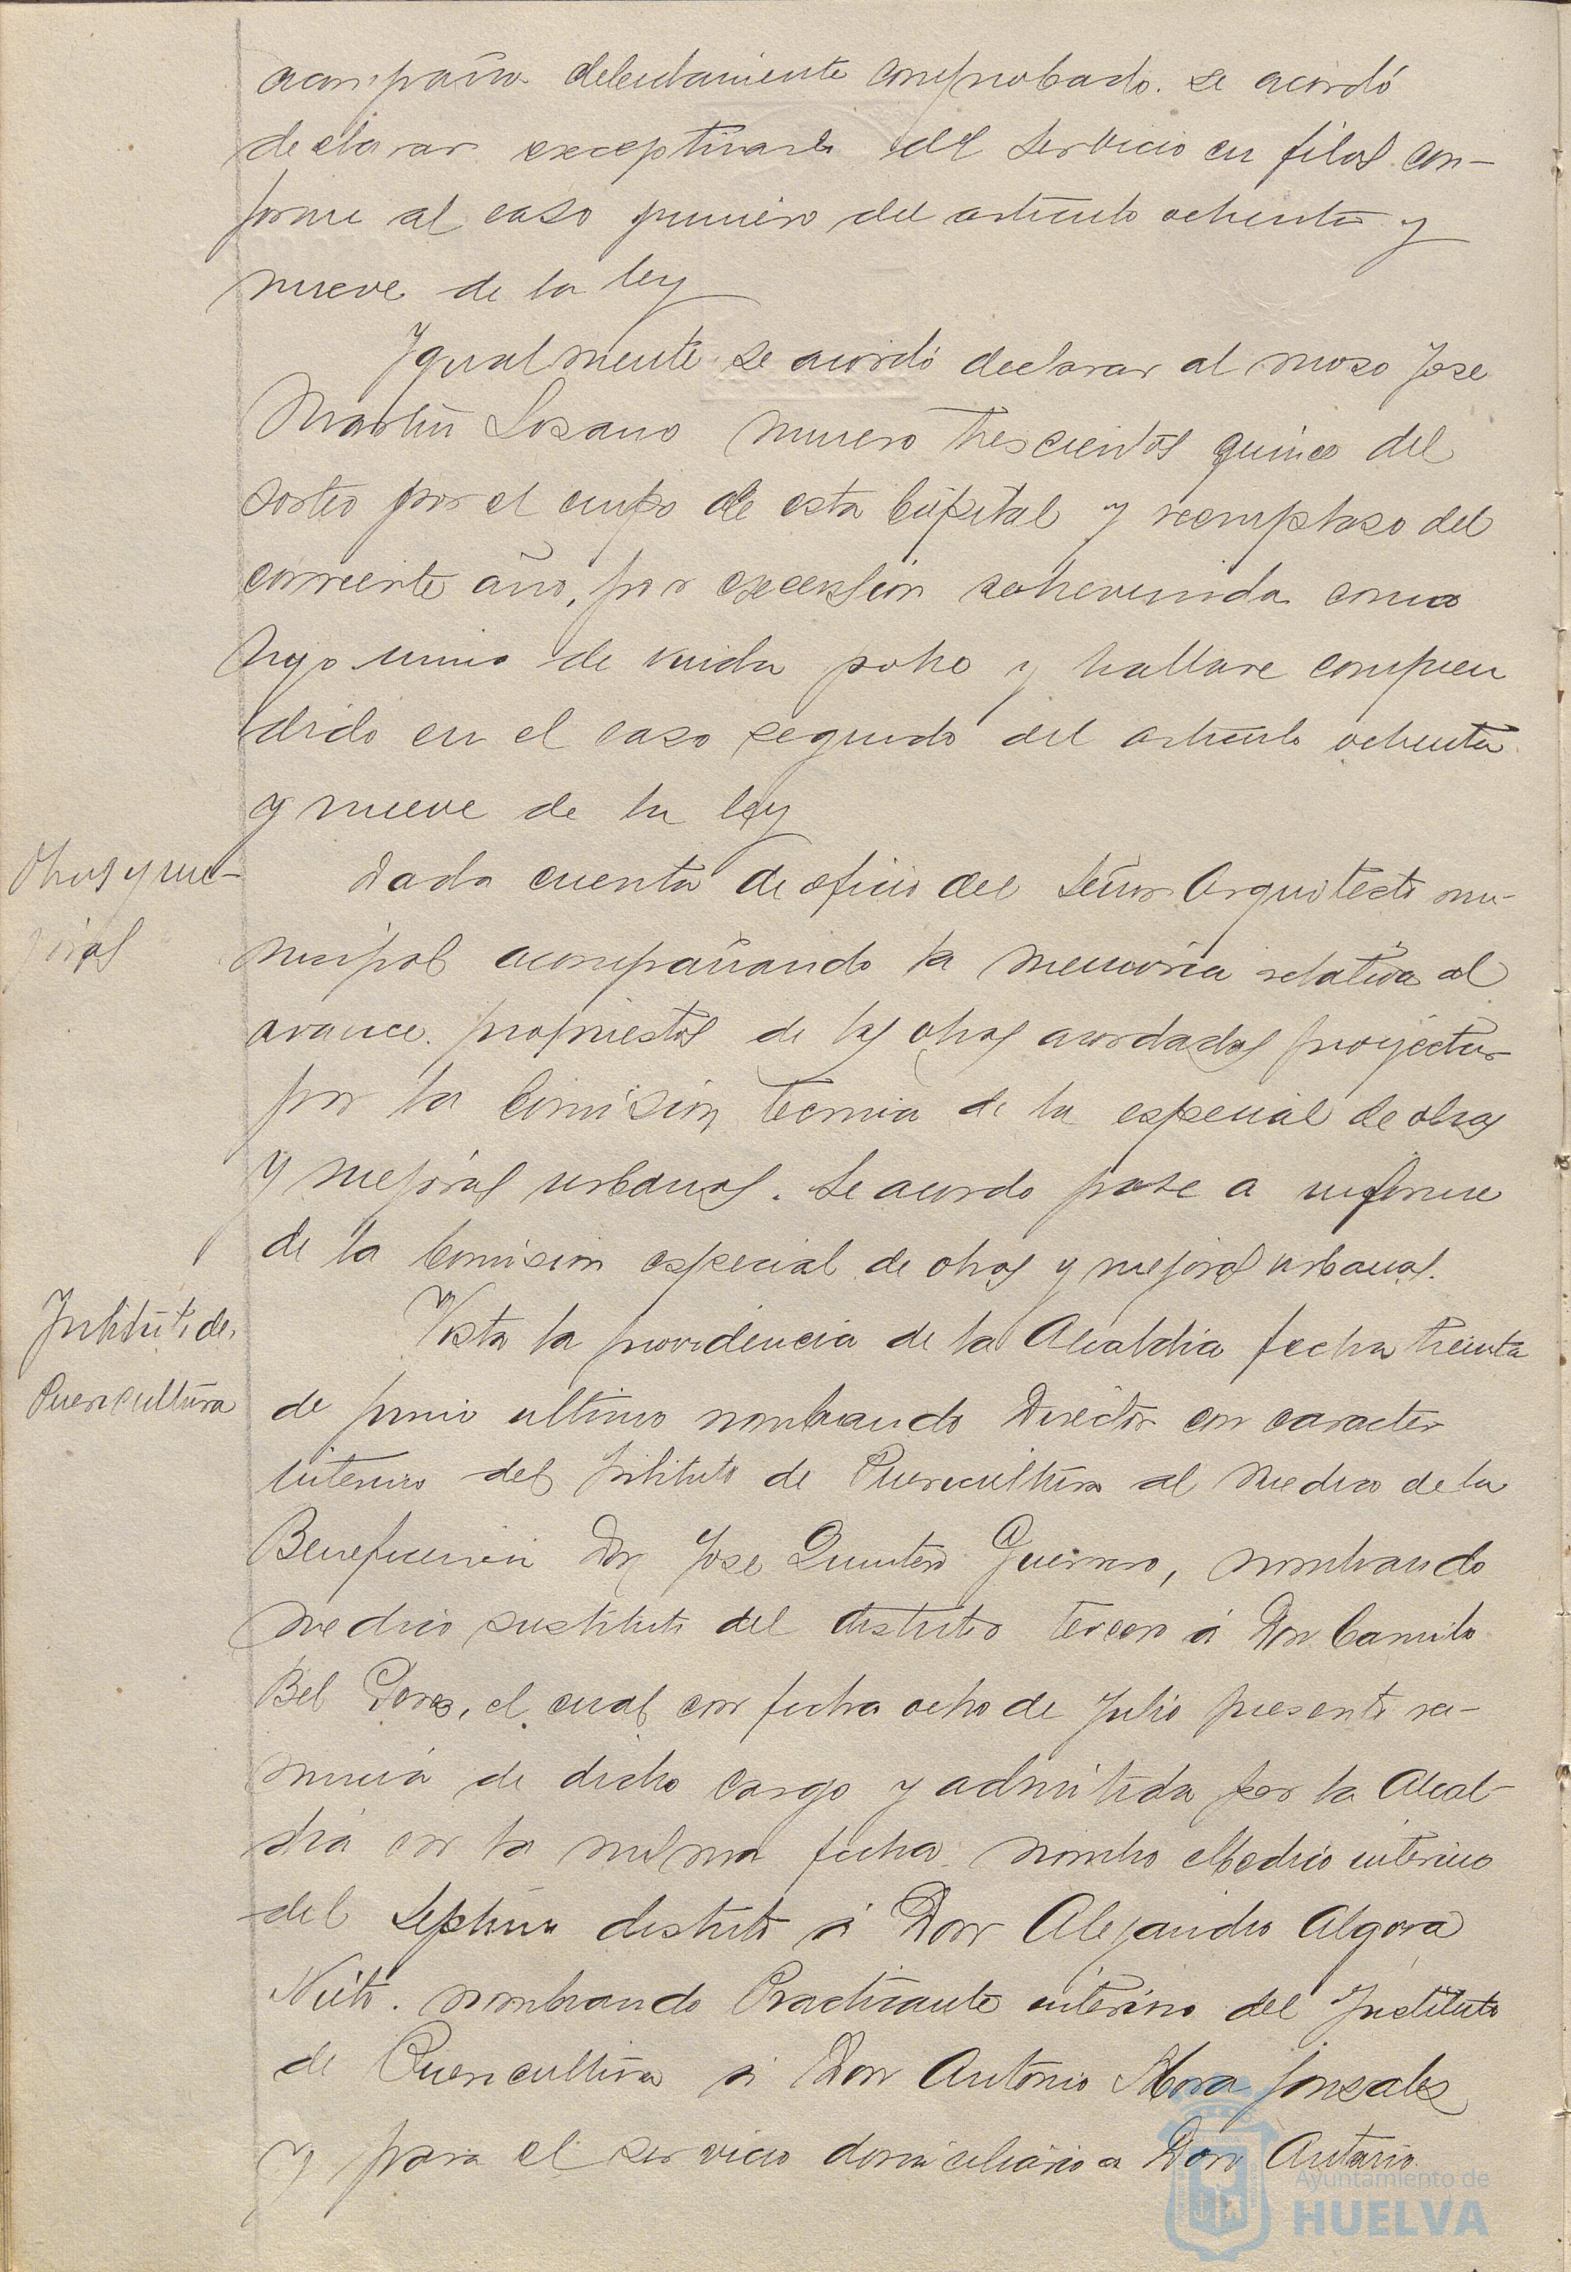 acompaña debidamente comprobado. se acordó
declarar exceptuarle del servicio en filas con-
forme al caso primero del articulo ochenta y
nueve de la ley
Ygualmente se acordó declarar al moso Jose
Martin Losano numero trescientos quince del
sorteo por el cupo de esta Capital y reemplaso del
corriente año, por excensión sobrevenida como
hijo unico de viuda pobre y hallare compren
dido en el caso segundo del articulo ochenta
y nueve de la ley
Obras y me-
joras
Dada cuenta de oficio del Señor Arquitecto mu-
nicipal acompañando la memoria relativa al
avance. propuestas de las obras acordadas proyectar
por la Comisión tecnica de la especial de obras
y mejoras urbanas. Se acordo pase a informe
de la Comision especial de obras y mejoras urbanas.
Instituto de
Puericultura
Vista la providencia de la Alcaldia fecha treinta
de junio ultimo nombrando Director con caracter
interino del Instituto de Puericultura al Medico de la
Beneficencia Don Jose Quintero Guerrero, nombrando
medico sustituto del distrito tercero á Don Camilo
Bel, el cual con fecha ocho de Julio presentó re-
nuncia de dicho cargo y admitida por la Alcal-
dia con la misma fecha. nombro Medico interino
del Septimo distrito á Don Alejandro Algora
Nieto. nombrando Practicante interino del Instituto
de Puericultura á Don Antonio Mora Gonsales
y para el servicio domiciliario a Don Antonio
Ayuntamiento de
HUELVA